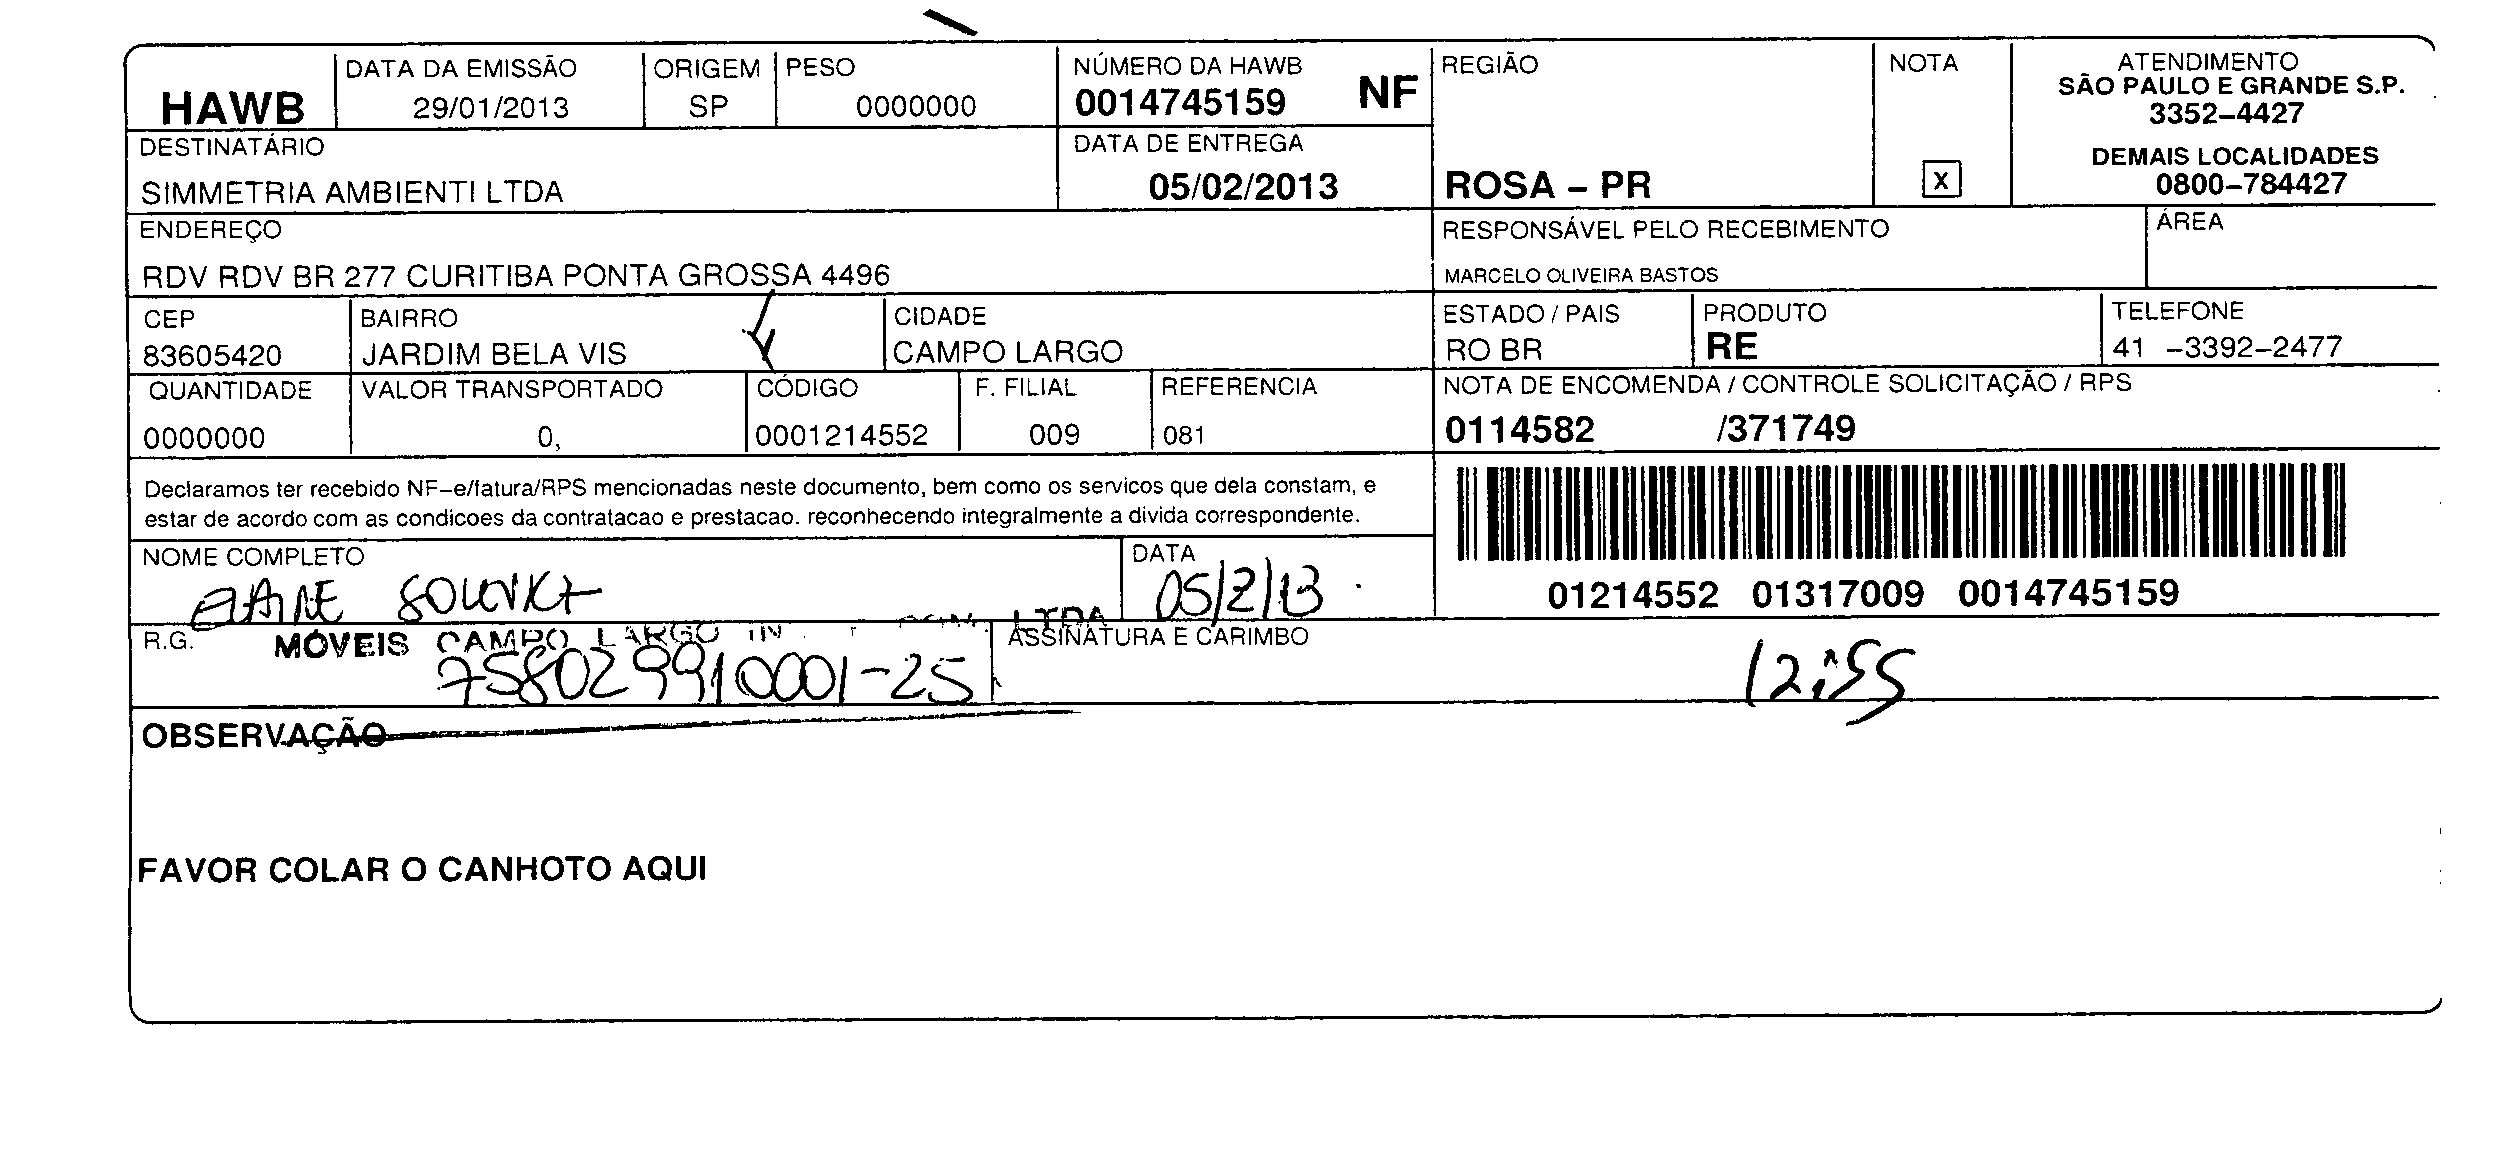 HAWB
DATA DA EMISSÃO
29/01/2013
ORIGEM
SP
PESO
0000000
NÚMERO DA HAWB
0014745159 NF
REGIÃO
ROSA – PR
NOTA
X
ATENDIMENTO
SÃO PAULO E GRANDE S.P.
3352–4427
DEMAIS LOCALIDADES
0800–784427
DESTINATÁRIO
SIMMETRIA AMBIENTI LTDA
DATA DE ENTREGA
05/02/2013
ENDEREÇO
RDV RDV BR 277 CURITIBA PONTA GROSSA 4496
RESPONSÁVEL PELO RECEBIMENTO
MARCELO OLIVEIRA BASTOS
ÁREA
CEP
83605420
BAIRRO
JARDIM BELA VIS
CIDADE
CAMPO LARGO
ESTADO / PAIS
RO BR
PRODUTO
RE
TELEFONE
41 –3392–2477
QUANTIDADE
0000000
VALOR TRANSPORTADO
0,
CÓDIGO
0001214552
F. FILIAL
009
REFERENCIA
081
NOTA DE ENCOMENDA / CONTROLE SOLICITAÇÃO / RPS
0114582 /371749
Declaramos ter recebido NF–e/fatura/RPS mencionadas neste documento, bem como os servicos que dela constam, e
estar de acordo com as condicoes da contratacao e prestacao. reconhecendo integralmente a divida correspondente.
01214552 01317009 0014745159
NOME COMPLETO
DATA
05/2/13
R.G.
MÓVEIS CAMPO LARGO LTDA
758029910001-25
ASSINATURA E CARIMBO
12:55
OBSERVAÇÃO
FAVOR COLAR O CANHOTO AQUI